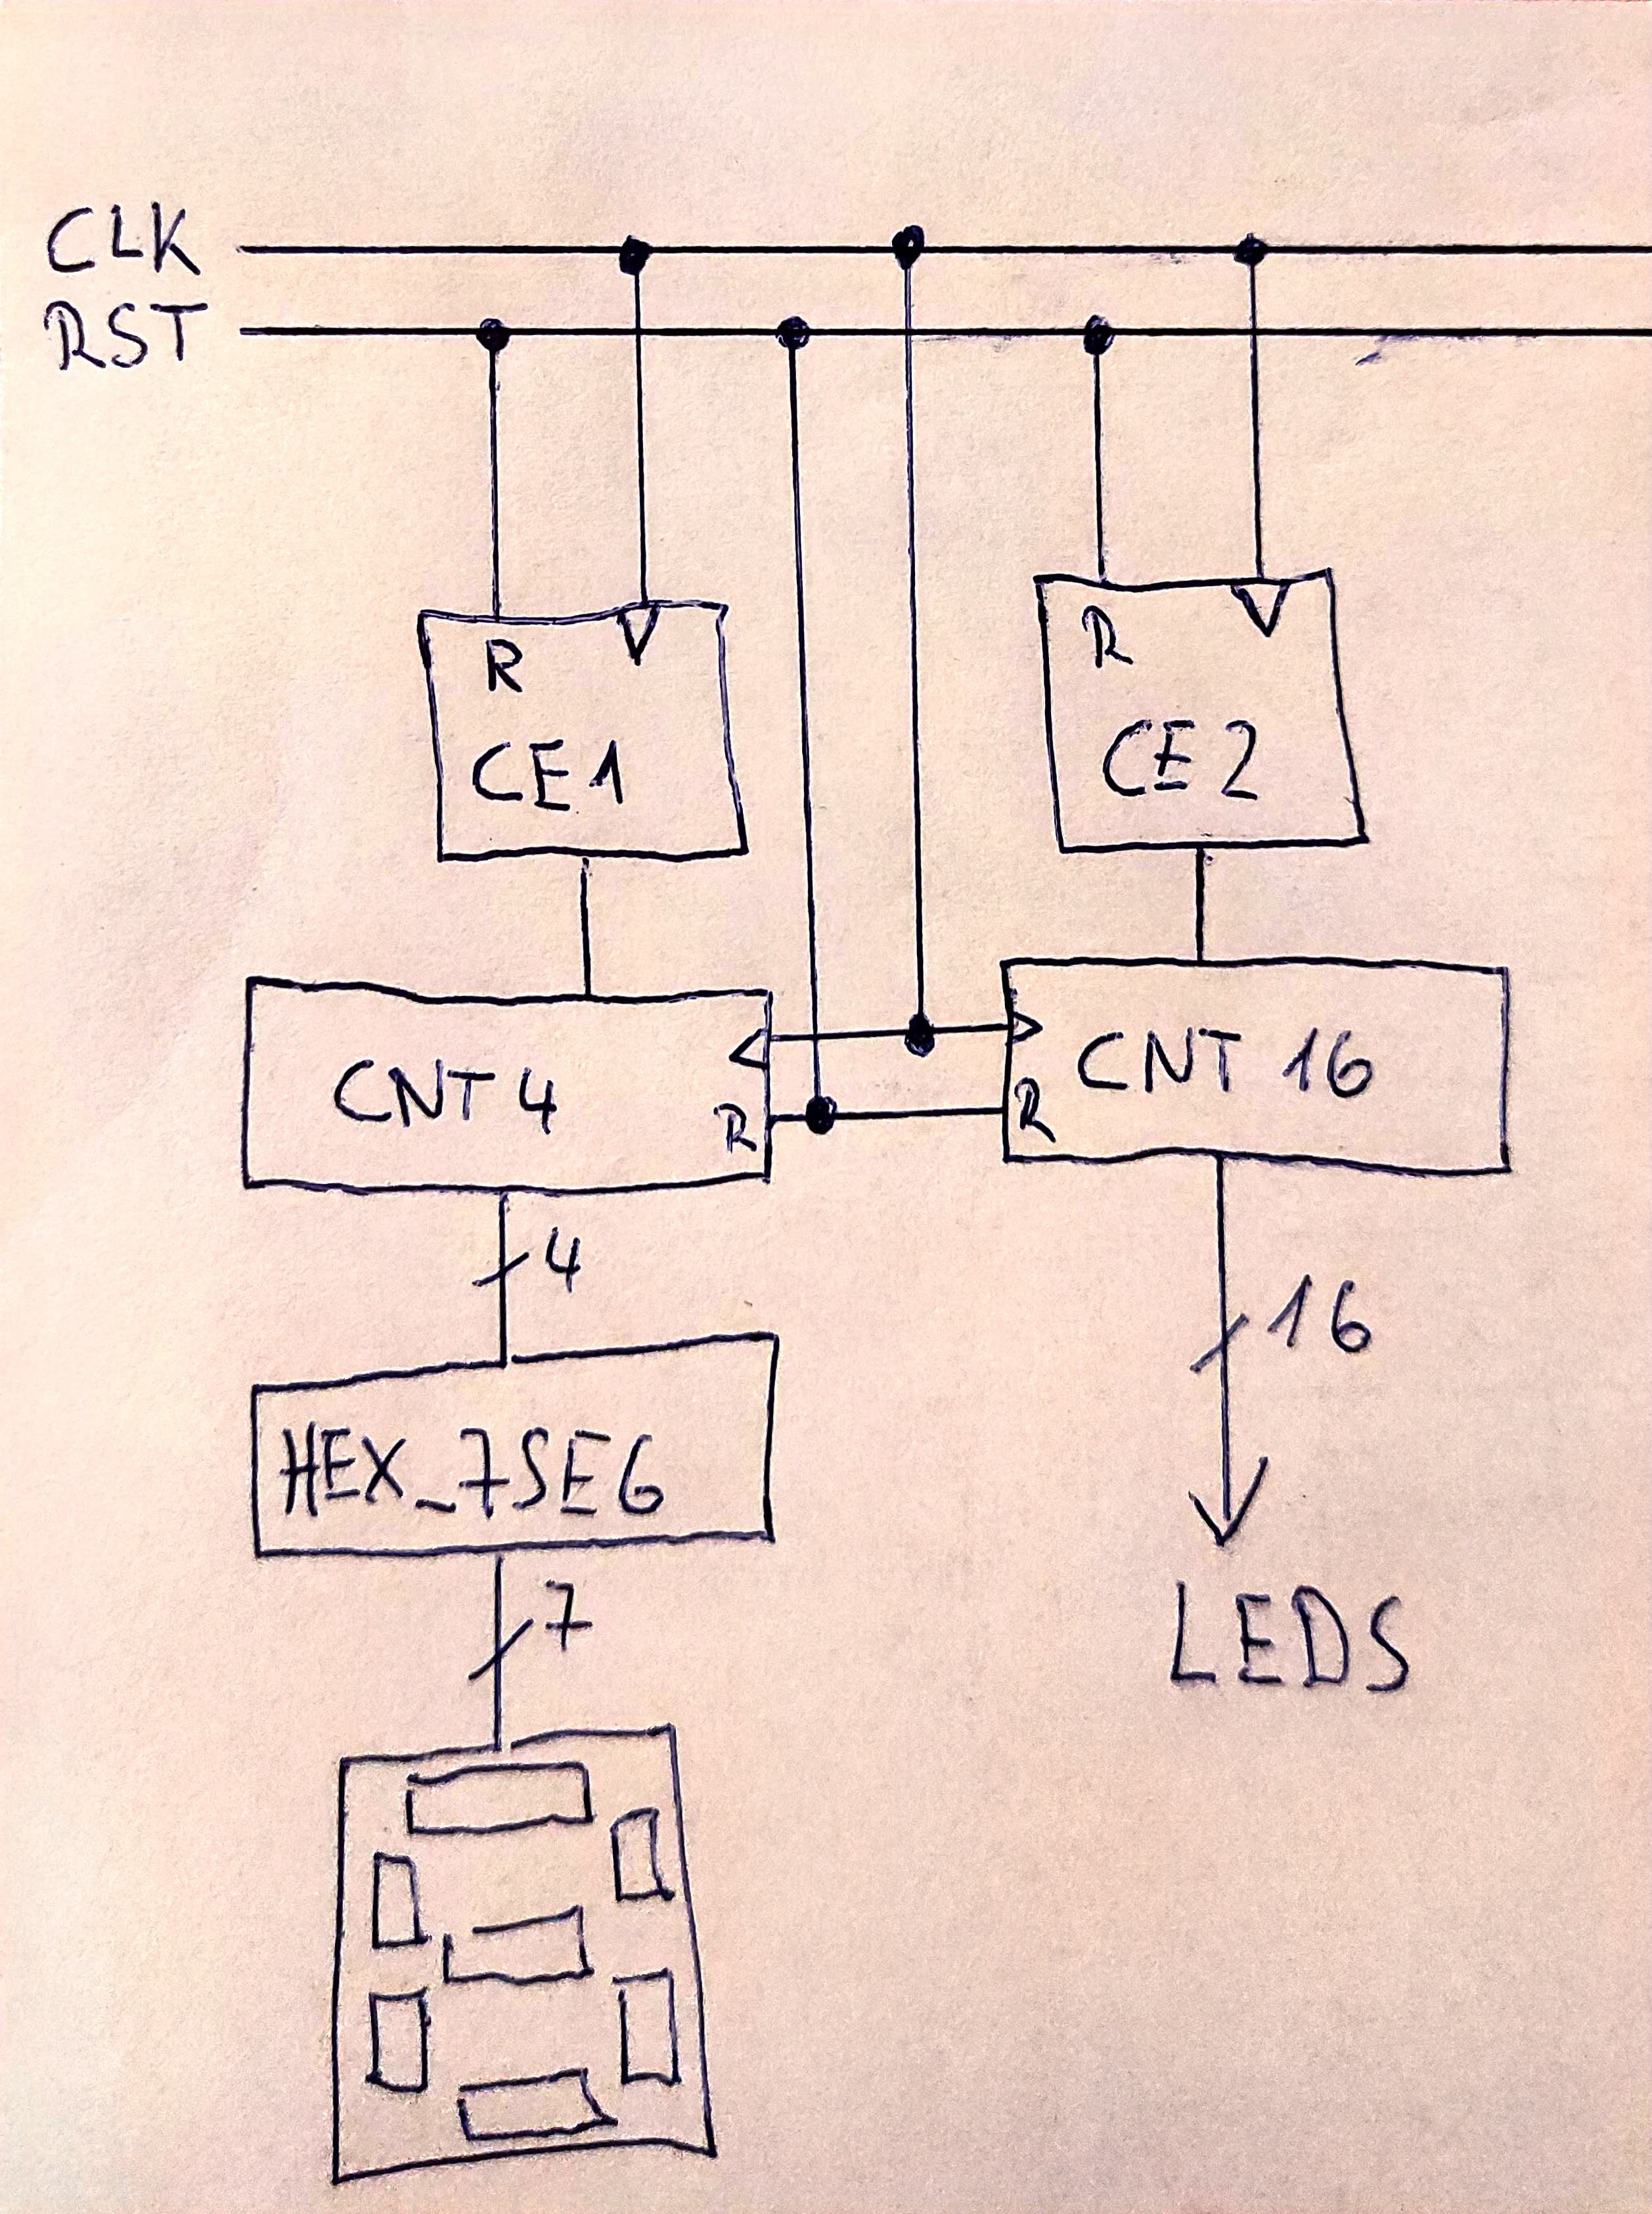 CLK
RST
R
CE1
R
CE2
CNT4
R
CNT 16
R
4
16
HEX_7SEG
7
LEDS